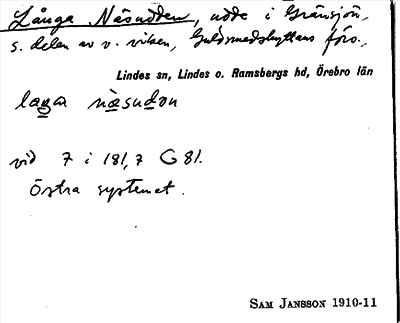 Långa Näsudden, udde i Gränsjön,
s. delen av v. viken, Guldsmedshyttans förs.,
Lindes sn, Lindes o. Ramsbergs hd, Örebro län
laga näsudon
vid 7 i 181,7 G 81.
Östra systemet.
SAM JANSSON 1910-11